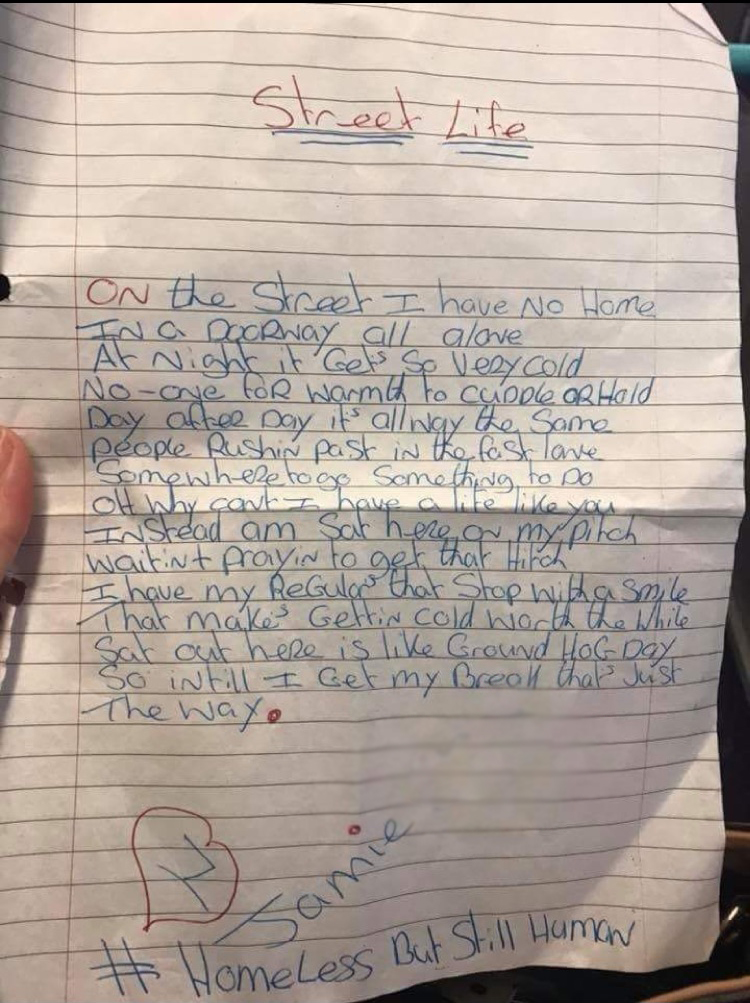 Street Life
ON the Street I have No Home
IN a DOORWAY all alone
At Night it Gets So Very cold
No-one for Warmth to CUDDLE OR Hold
Day after Day it's allway the Same
People Rushin past in the fast lane
Somewhere to go Something to Do
OH Why cant I have a life like you
INStead am Sat here on my pitch
Waitin + prayin to get that Hitch
I have my Regulars that Stop With a Smile
That makes Gettin cold worth the While
Sat out here is like Ground HOG DAY
So intill I Get my Break that's Just
The Way.
Jamie
# Homeless But Still Human